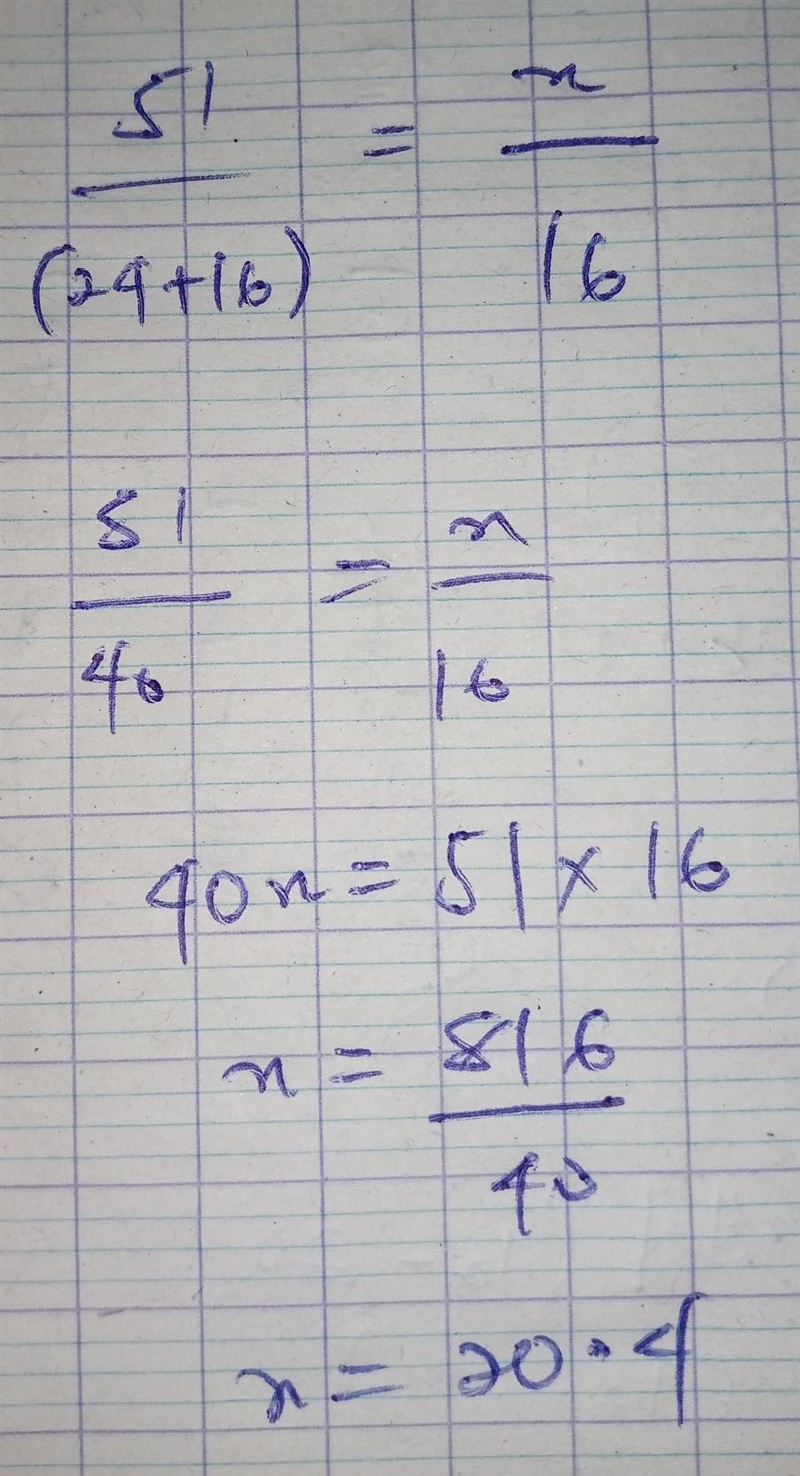 51/(24+16) = x/16
51/40 = x/16
40x = 51 × 16
x = 816/40
x = 20.4